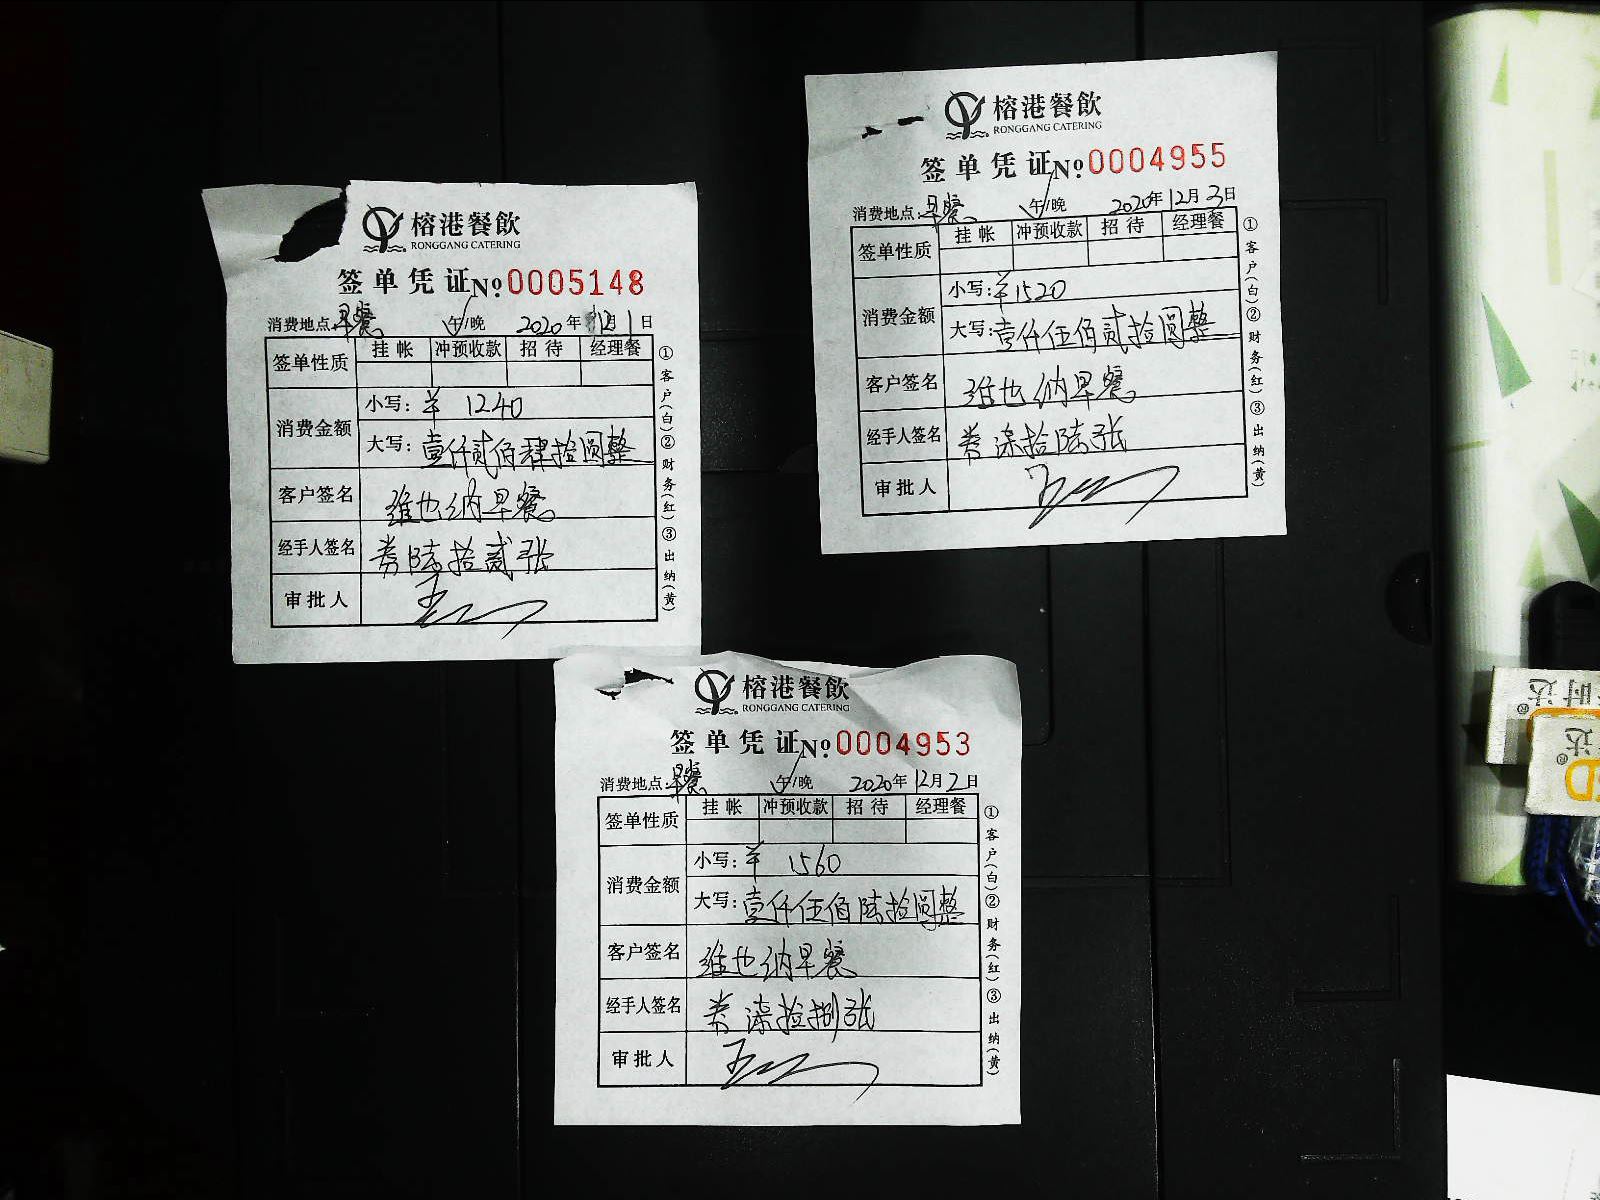 榕港餐飲
RONGGANG CATERING
签单凭证 No 0005148
消费地点:早餐 午/晚 2020年12月1日
签单性质 挂帐 冲预收款 招待 经理餐
消费金额
小写:¥ 1240
大写:壹仟贰佰肆拾圆整
客户签名 维也纳早餐
经手人签名 券陆拾贰张
审批人
①客户(白)②财务(红)③出纳(黄)
榕港餐飲
RONGGANG CATERING
签单凭证 No 0004955
消费地点:早餐 午/晚 2020年12月3日
签单性质 挂帐 冲预收款 招待 经理餐
消费金额
小写:¥1520
大写:壹仟伍佰贰拾圆整
客户签名 维也纳早餐
经手人签名 券柒拾陆张
审批人
①客户(白)②财务(红)③出纳(黄)
榕港餐飲
RONGGANG CATERING
签单凭证 No 0004953
消费地点:早餐 午/晚 2020年12月2日
签单性质 挂帐 冲预收款 招待 经理餐
消费金额
小写:¥ 1560
大写:壹仟伍佰陆拾圆整
客户签名 维也纳早餐
经手人签名 券柒拾捌张
审批人
①客户(白)②财务(红)③出纳(黄)
时达
达